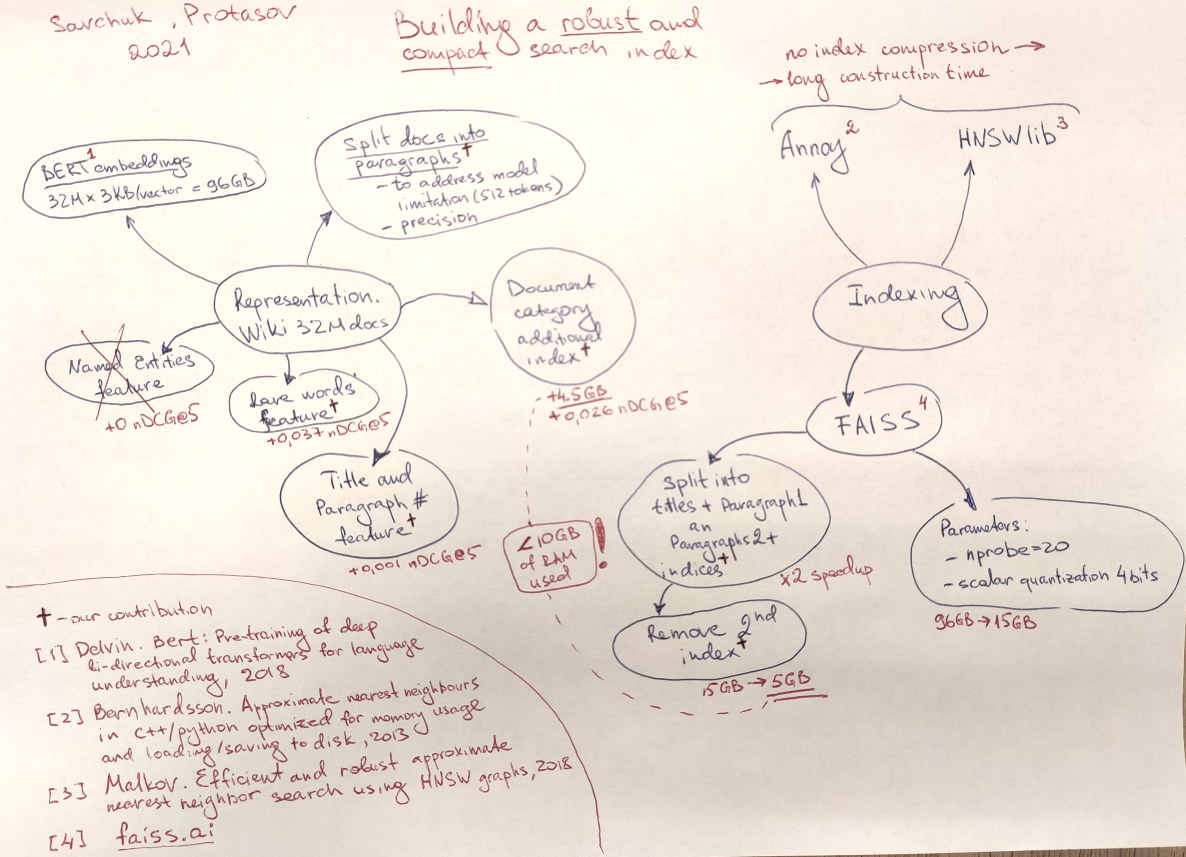 Savchuk, Protasov
2021
Building a robust and
compact search index
no index compression →
→ long construction time
Annoy 2
HNSWlib 3
BERT 1 embeddings
32M × 3KB/vector = 96GB
Split docs into
paragraphs †
- to address model
limitation (512 tokens)
- precision
Representation.
Wiki 32M docs
Document
category
additional
index †
+4.5GB
+0,026 nDCG@5
Indexing
Named Entities
feature
+0 nDCG@5
Rare words
feature †
+0,037 nDCG@5
Title and
Paragraph #
feature †
+0,001 nDCG@5
FAISS 4
Split into
titles + Paragraph1
an
Paragraphs2+
indices †
×2 speedup
Parameters:
- nprobe=20
- scalar quantization 4bits
96GB → 15GB
<10GB
of RAM
used
!
Remove 2nd
index †
15GB → 5GB
† - our contribution
[1] Delvin. Bert: Pre-training of deep
bi-directional transformers for language
understanding, 2018
[2] Bernhardsson. Approximate nearest neighbours
in C++/python optimized for memory usage
and loading/saving to disk, 2013
[3] Malkov. Efficient and robust approximate
nearest neighbor search using HNSW graphs, 2018
[4] faiss.ai